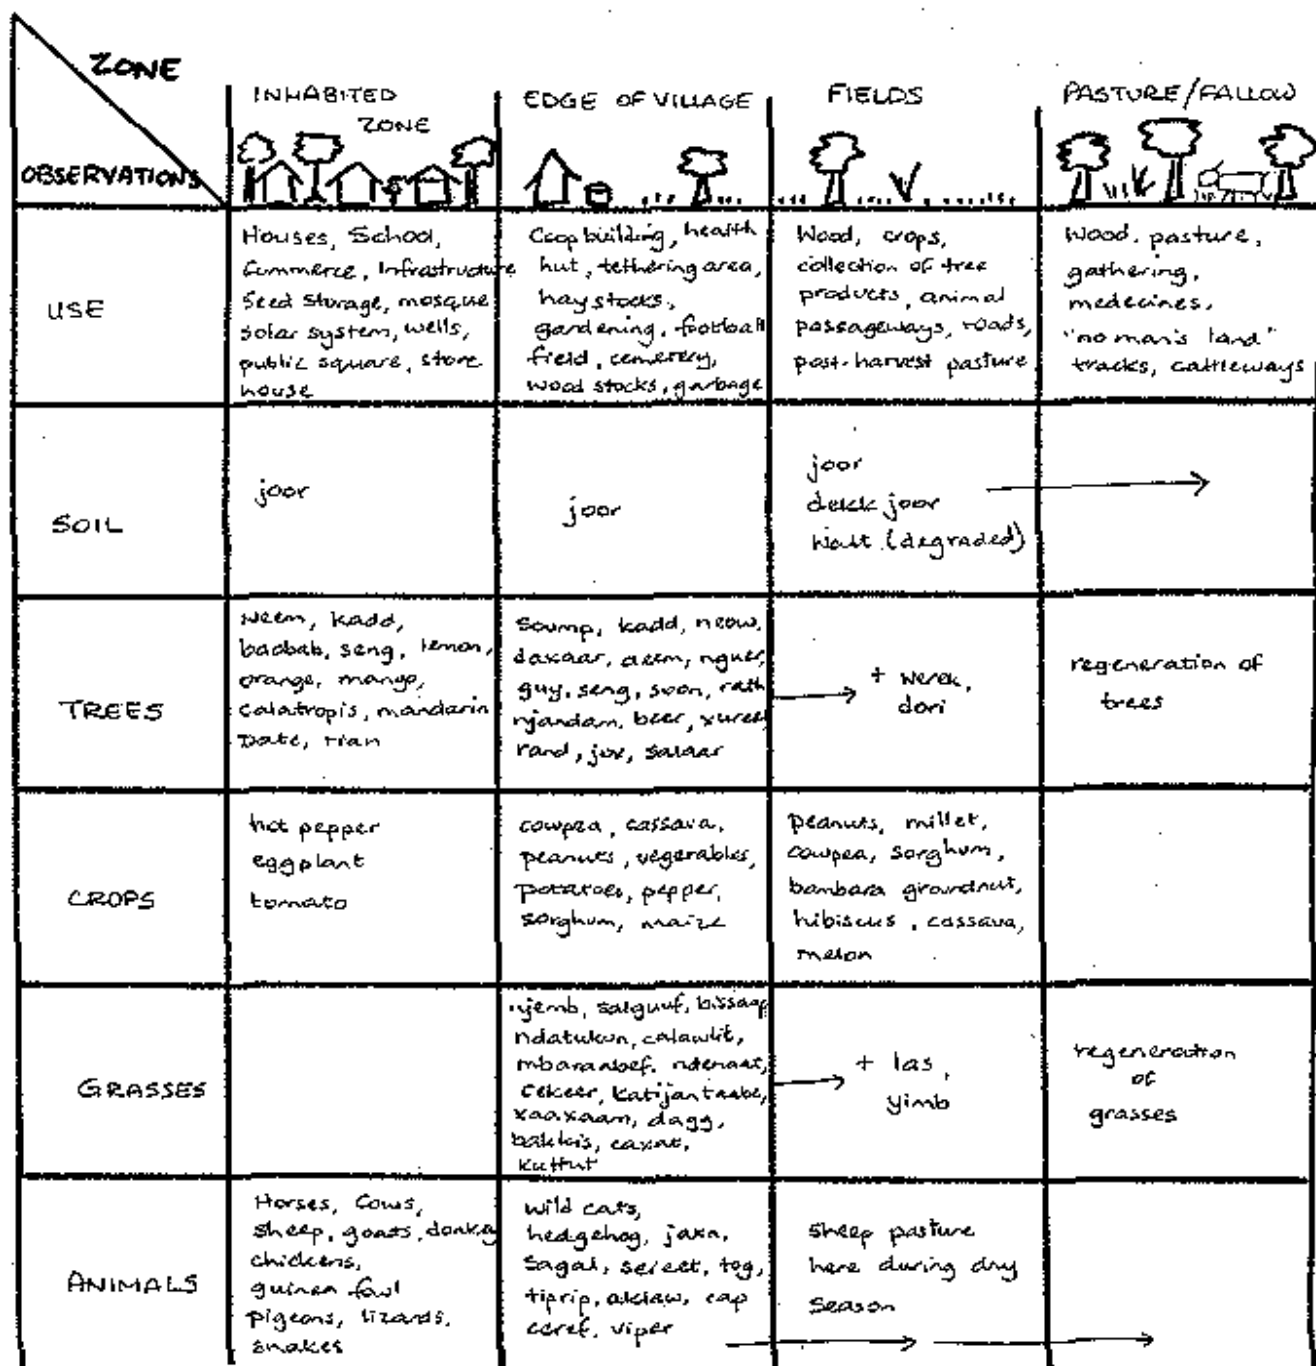 ZONE
OBSERVATIONS
INHABITED
ZONE
EDGE OF VILLAGE
FIELDS
PASTURE/FALLOW
USE
Houses, School,
Commerce, Infrastructure
Seed Storage, mosque
solar system, wells,
public square, store
house
Coop building, health
hut, tethering area,
hay stocks,
gardening, football
field, cemetery,
wood stocks, garbage
Wood, crops,
collection of tree
products, animal
passageways, roads,
post-harvest pasture
Wood, pasture,
gathering,
medecines,
"no man's land"
tracks, cattleways
SOIL
joor
joor
joor
dekk joor
(degraded)
TREES
Neem, kadd,
baobab, seng, lemon,
orange, mango,
calatropis, mandarin
Date,
Soump, kadd, neow,
daxaar, nguer,
guy, seng, soon, rath
njandam, beer,
rand, salaar
+ werek,
dori
regeneration of
trees
CROPS
hot pepper
eggplant
tomato
cowpea, cassava,
peanuts, vegetables,
potatoes, pepper,
sorghum, maize
peanuts, millet,
cowpea, sorghum,
bambara groundnut,
hibiscus, cassava,
melon
GRASSES
salguuf, bissaap
ndatukan,
xaaxaam, dagg,
bakkis,
+ las,
yimb
regeneration
of
grasses
ANIMALS
Horses, Cows,
sheep, goats, donkey
chickens,
guinea fowl
pigeons, lizards,
snakes
wild cats,
hedgehog,
sereet, tog,
tiprip, cap
viper
sheep pasture
here during dry
season